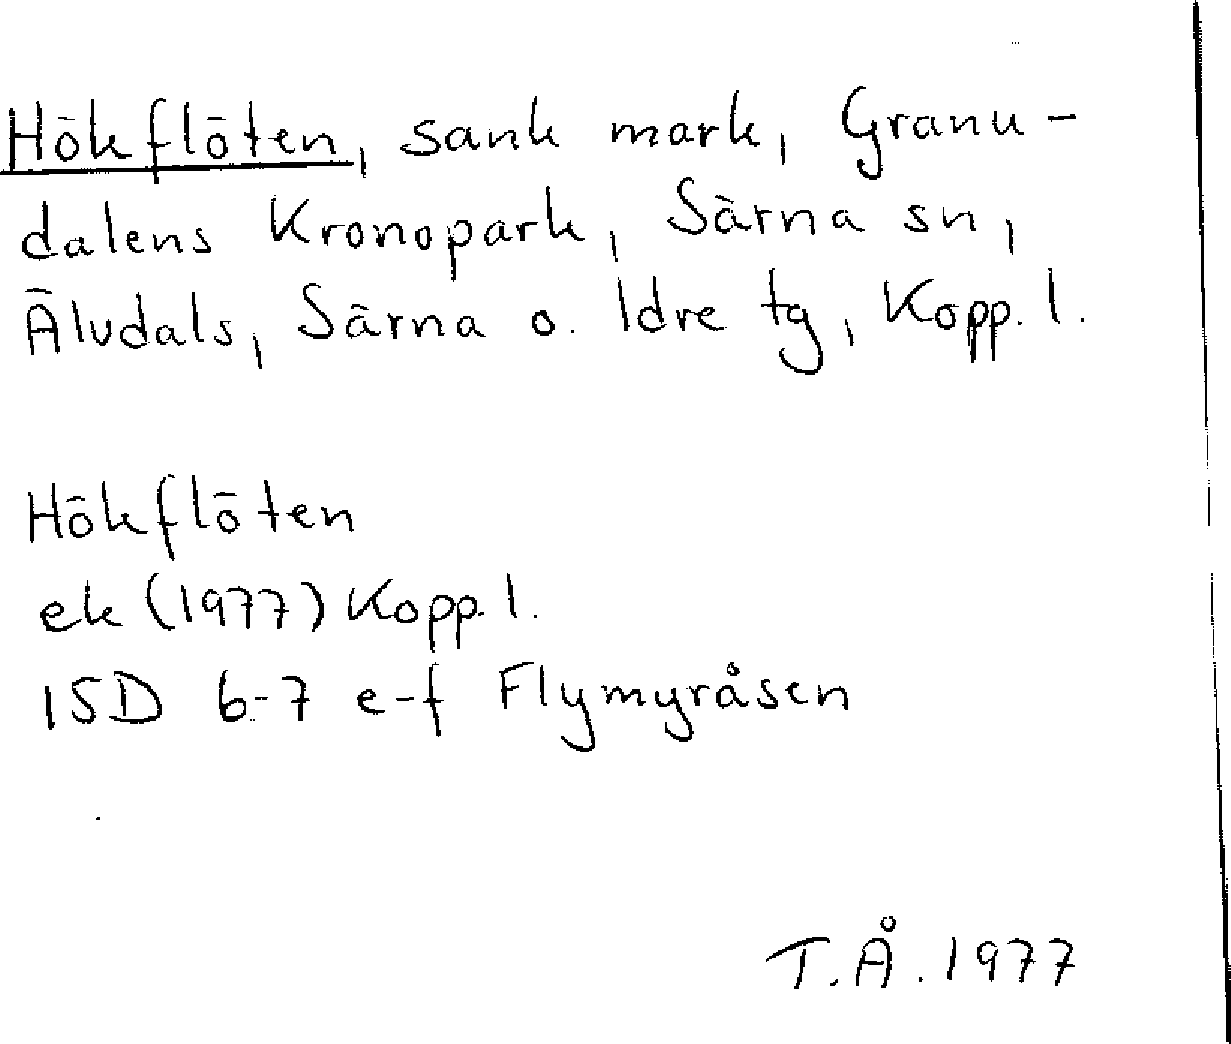 Hökflöten, sank mark, Granu-
dalens Kronopark, Särna sn,
Älvdals, Särna o. Idre tg, Kopp. l.
Hökflöten
ek (1977) Kopp. l.
15D 6-7 e-f Flymyråsen
T.Å. 1977